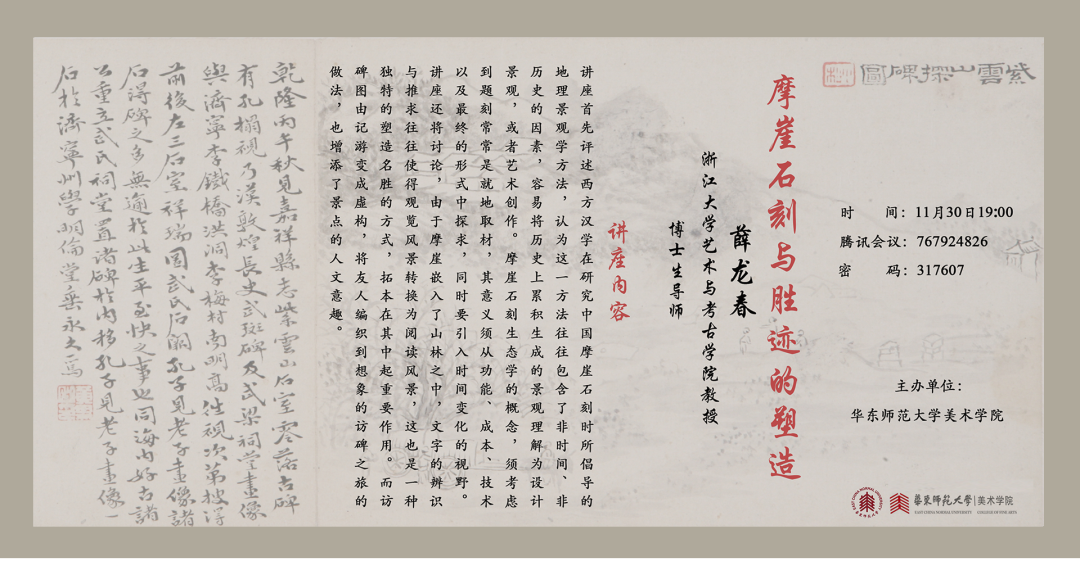 紫雲山探碑圖
摩崖石刻与胜迹的塑造
薛龙春
浙江大学艺术与考古学院教授
博士生导师
时　间：11月30日19:00
腾讯会议：767924826
密　码：317607
主办单位：
华东师范大学美术学院
讲座内容
讲座首先评述西方汉学在研究中国摩崖石刻时所倡导的
地理景观学方法，认为这一方法往往包含了非时间、非
历史的因素，容易将历史上累积生成的景观理解为设计
景观，或者艺术创作。摩崖石刻生态学的概念，须考虑
到题刻常常是就地取材，其意义须从功能、成本、技术
以及最终的形式中探求，同时要引入时间变化的视野。
讲座还将讨论，由于摩崖嵌入了山林之中，文字的辨识
与推求往往使得观览风景转换为阅读风景，这也是一种
独特的塑造名胜的方式，拓本在其中起重要作用。而访
碑图由记游变成虚构，将友人编织到想象的访碑之旅的
做法，也增添了景点的人文意趣。
乾隆丙午秋見嘉祥縣志紫雲山石室零落古碑
有孔搨視乃漢敦煌長史武斑碑及武梁祠堂畫像
與濟寧李鐵橋洪洞李梅村南明高往視次第搜得
前後左三石室祥瑞圖武氏石闕孔子見老子畫像諸
石得碑之多無逾於此生平至快之事也同海内好古諸
公重立武氏祠堂置諸碑於内移孔子見老子畫像一
石於濟寧州學明倫堂垂永久焉
華東師范大學 美术学院
EAST CHINA NORMAL UNIVERSITY COLLEGE OF FINE ARTS